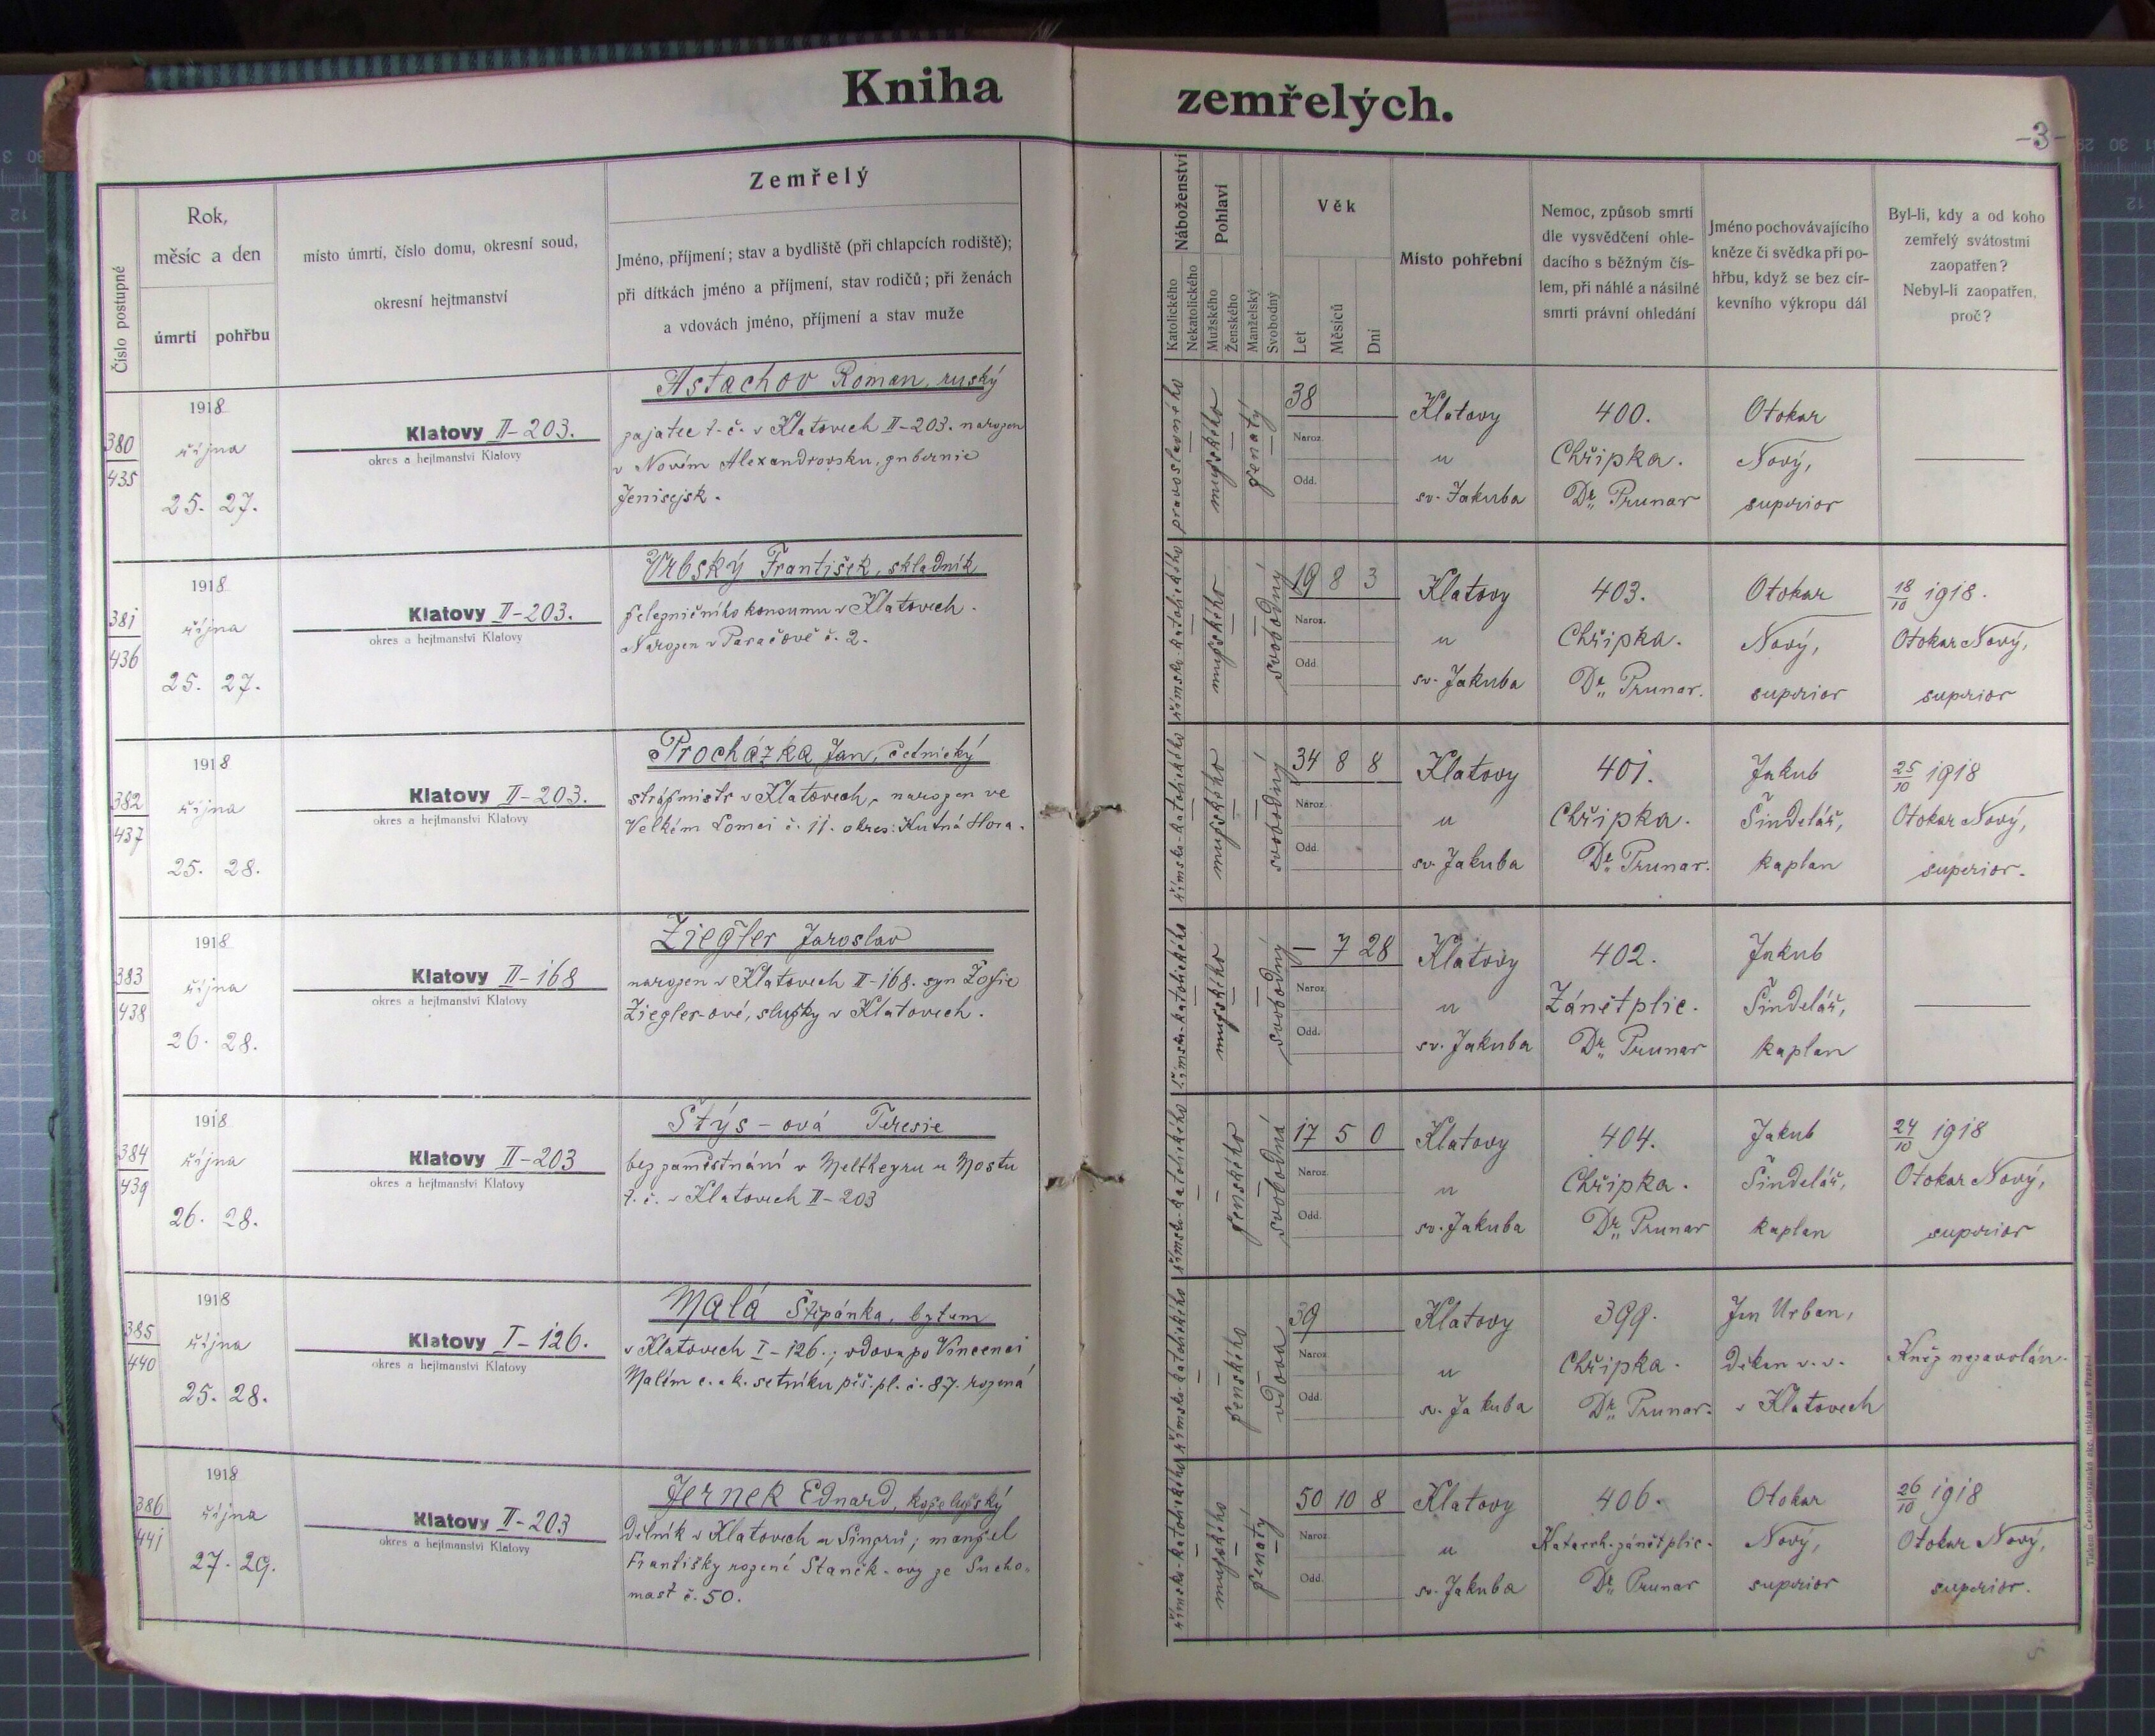 Kniha zemřelých.
-3-
Číslo postupné
Rok,
měsíc a den
úmrtí pohřbu
místo úmrtí, číslo domu, okresní soud,
okresní hejtmanství
Zemřelý
Jméno, příjmení; stav a bydliště (při chlapcích rodiště);
při dítkách jméno a příjmení, stav rodičů; při ženách
a vdovách jméno, příjmení a stav muže
Náboženství
Katolického
Nekatolického
Pohlaví
Mužského
Ženského
Manželský
Svobodný
Věk
Let
Měsíců
Dní
Místo pohřební
Nemoc, způsob smrti
dle vysvědčení ohle-
dacího s běžným čís-
lem, při náhlé a násilné
smrti právní ohledání
Jméno pochovávajícího
kněze či svědka při po-
hřbu, když se bez cír-
kevního výkropu dál
Byl-li, kdy a od koho
zemřelý svátostmi
zaopatřen?
Nebyl-li zaopatřen,
proč?
380
435
1918
října
25. 27.
Klatovy II-203.
okres a hejtmanství Klatovy
Astachov Roman, ruský
zajatec t. č. v Klatovech II-203. narozen
v Novém Alexandrovsku, gubernie
Jenisejsk.
pravoslavného
mužského
ženatý
38
Naroz.
Odd.
Klatovy
u
sv. Jakuba
400.
Chřipka.
Dr. Prunar
Otokar
Nový,
superior
381
436
1918
října
25. 27.
Klatovy II-203.
okres a hejtmanství Klatovy
Vrbský František, skladník
železničního konsumu v Klatovech.
Narozen v Paračově č. 2.
římsko-katolického
mužského
svobodný
19 8 3
Naroz.
Odd.
Klatovy
u
sv. Jakuba
403.
Chřipka.
Dr. Prunar.
Otokar
Nový,
superior
18/10 1918.
Otokar Nový,
superior
382
437
1918
října
25. 28.
Klatovy II-203.
okres a hejtmanství Klatovy
Procházka Jan, četnický
strážmistr v Klatovech, narozen ve
Velkém Lomci č. 11. okres: Kutná Hora.
římsko-katolického
mužského
svobodný
34 8 8
Naroz.
Odd.
Klatovy
u
sv. Jakuba
401.
Chřipka.
Dr. Prunar.
Jakub
Šindelář,
kaplan
25/10 1918
Otokar Nový,
superior.
383
438
1918
října
26. 28.
Klatovy II-168
okres a hejtmanství Klatovy
Ziegler Jaroslav
narozen v Klatovech II-168. syn Žofie
Ziegler-ové, služky v Klatovech.
římsko-katolického
mužského
svobodný
— 7 28
Naroz.
Odd.
Klatovy
u
sv. Jakuba
402.
Zánět plic.
Dr. Prunar
Jakub
Šindelář,
kaplan
384
439
1918
října
26. 28.
Klatovy II-203
okres a hejtmanství Klatovy
Stýs-ová Teresie
bez zaměstnání v u Mostu
t. č. v Klatovech II-203
římsko-katolického
ženského
svobodná
17 5 0
Naroz.
Odd.
Klatovy
u
sv. Jakuba
404.
Chřipka.
Dr. Prunar
Jakub
Šindelář,
kaplan
24/10 1918
Otokar Nový,
superior
385
440
1918
října
25. 28.
Klatovy I-126.
okres a hejtmanství Klatovy
Malá Štěpánka, bytem
v Klatovech I-126.; vdova po Vincenci
Malém c. a k. setníku pěš. pl. č. 87. rozená
římsko-katolického
ženského
vdova
39
Naroz.
Odd.
Klatovy
u
sv. Jakuba
399.
Chřipka.
Dr. Prunar.
Jan Urban,
děkan v. v.
v Klatovech
Kněz nezavolán.
386
441
1918
října
27. 29.
Klatovy II-203
okres a hejtmanství Klatovy
Jernek Eduard, koželužský
dělník v Klatovech u ; manžel
Františky rozené Staněk-ovy ze Sucho-
mast č. 50.
římsko-katolického
mužského
ženatý
50 10 8
Naroz.
Odd.
Klatovy
u
sv. Jakuba
406.
Katarrh. zánět plic.
Dr. Prunar
Otokar
Nový,
superior
26/10 1918
Otokar Nový,
superior.